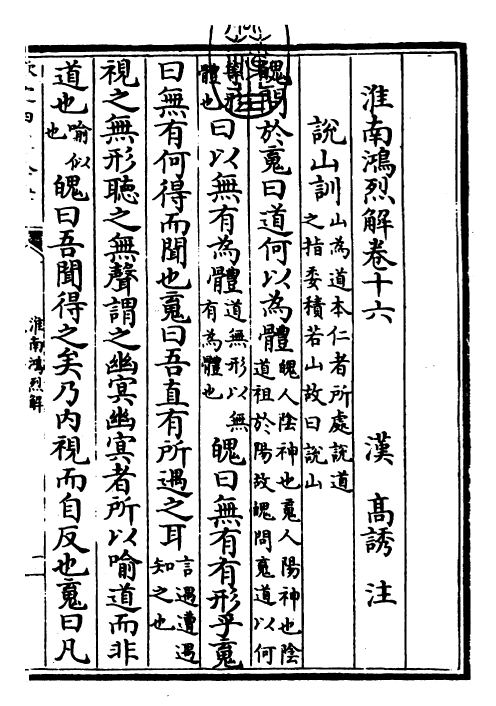 淮南鴻烈解卷十六
漢 高誘 注
說山訓山為道本仁者所處說道之指委積若山故曰說山
魄問於䰟曰道何以為體魄人陰神也䰟人陽神也陰道祖於陽故魄問䰟道以何
體也曰以無有為體道無形以無有為體也魄曰無有有形乎䰟
曰無有何得而聞也䰟曰吾直有所遇之耳言遇遭遇知之也
視之無形聽之無聲謂之幽冥幽冥者所以喻道而非
道也喻似也魄曰吾聞得之矣乃內視而自反也䰟曰凡
淮南鴻烈解
一